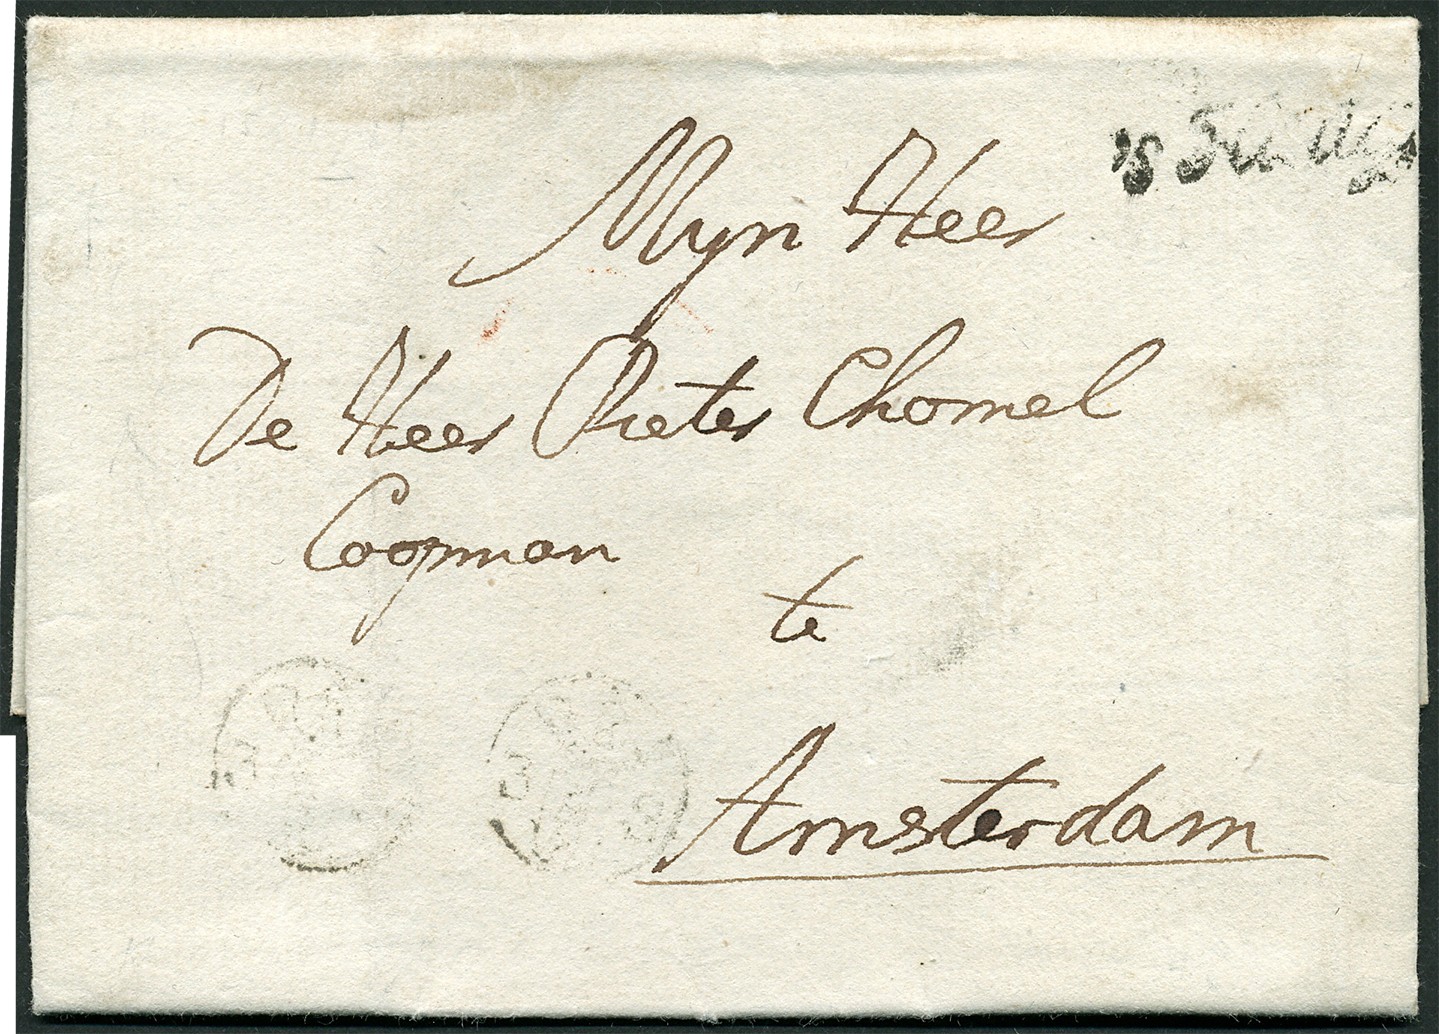 Myn Heer
De Heer Pieter Chomel
Coopman
te
Amsterdam